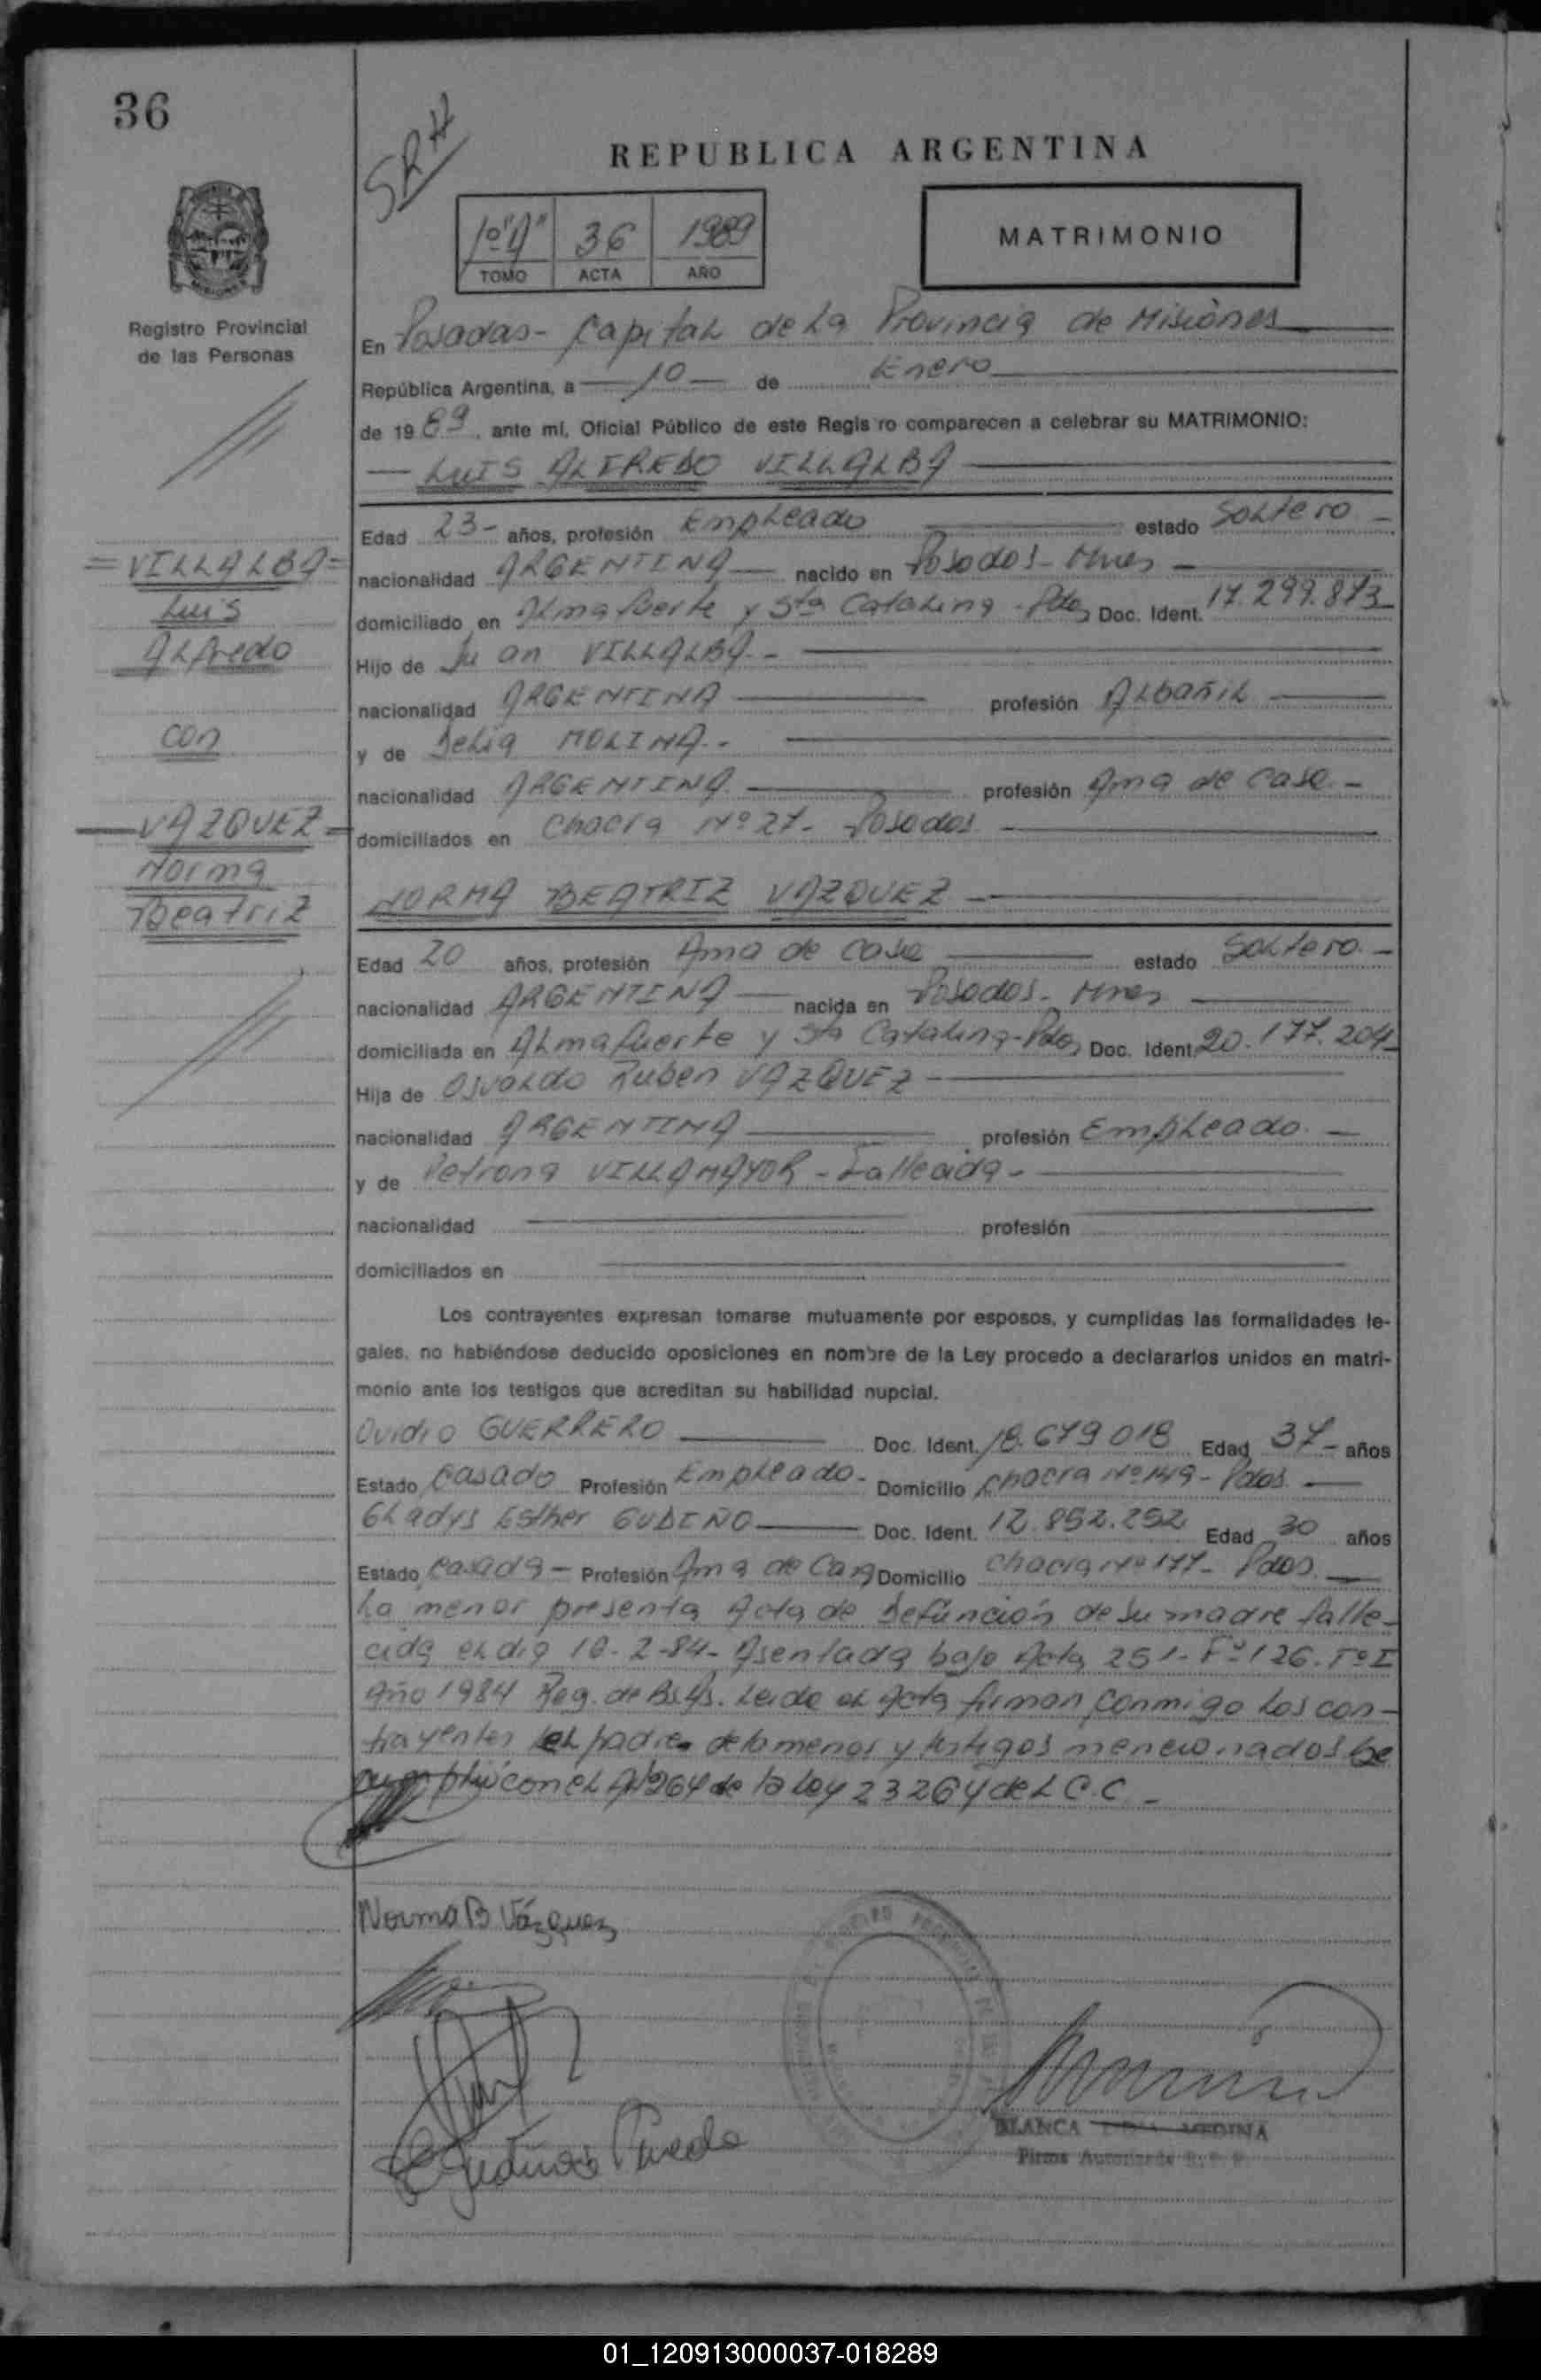 36
SRH
REPUBLICA ARGENTINA
1º "A" 36 1989
TOMO ACTA AÑO
MATRIMONIO
Registro Provincial
de las Personas
En Posadas - Capital de la Provincia de Misiones
República Argentina, a 10 de Enero
de 1989, ante mí, Oficial Público de este Regis ro comparecen a celebrar su MATRIMONIO:
LUIS ALFREDO VILLALBA
Edad 23- años, profesión Empleado estado Soltero -
nacionalidad ARGENTINA nacido en Posadas - Mnes -
domiciliado en Almafuerte y Sta Catalina - Pdas Doc. Ident. 17.299.873
Hijo de Juan VILLALBA -
nacionalidad ARGENTINA profesión Albañil
y de Delia MOLINA -
nacionalidad ARGENTINA profesión Ama de casa -
domiciliados en Chacra Nº 27 - Posadas
= VILLALBA =
Luis
Alfredo
con
VAZQUEZ =
Norma
Beatriz
NORMA BEATRIZ VAZQUEZ
Edad 20 años, profesión Ama de casa estado Soltero. -
nacionalidad ARGENTINA nacida en Posadas - Mnes
domiciliada en Almafuerte y Sta Catalina - Pdas Doc. Ident. 20.177.204
Hija de Osvaldo Ruben VAZQUEZ
nacionalidad ARGENTINA profesión Empleado. -
y de Petrona VILLAMAYOR - Fallecida -
nacionalidad profesión
domiciliados en
Los contrayentes expresan tomarse mutuamente por esposos, y cumplidas las formalidades le-
gales, no habiéndose deducido oposiciones en nombre de la Ley procedo a declararlos unidos en matri-
monio ante los testigos que acreditan su habilidad nupcial.
Ovidio GUERRERO Doc. Ident. 18.679.018 Edad 37 - años
Estado Casado Profesión Empleado - Domicilio Chacra Nº 149 - Pdas.
Gladys Esther GUDIÑO Doc. Ident. 12.852.252 Edad 30 años
Estado Casada - Profesión Ama de Casa Domicilio Chacra Nº 177 - Pdas.
La menor presenta Acta de Defunción de su madre falle-
cida el dia 10-2-84 - Asentada bajo Acta 251 - Fº 126. Tº I
Año 1984 Reg. de Bs. As. Leida el Acta firman conmigo los con-
trayentes el padre de la menor y testigos mencionados Se
cumplió con el Art 264 de la Ley 23264 del C.C. -
Norma B Vázquez
BLANCA MEDINA
Firma Autorizada
01_120913000037-018289